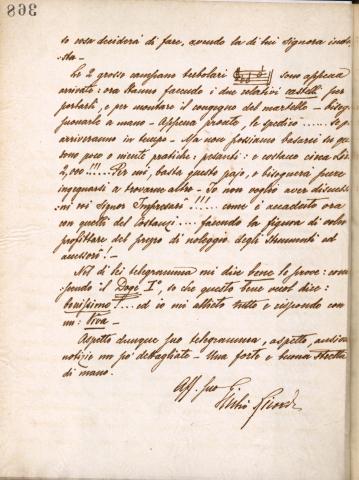 368
to cosa deciderà di fare, avendo la di lei signora indi
sta –
Le 2 grosse campane tubolari sono appena
arrivate: ora stanno facendo i due relativi castelli per
portarle, e per montare il congegno del martello – biso
suonarle a mano – Appena pronte, le spedisco ...... Se
arriveranno in tempo – Ma non possiamo basarci su
sono poco o niente pratiche: pesanti: e costano circa
2,000!!!.... Per noi, basta questo pajo, e bisognerà pure
ingegnarsi a trovarne altre – Io non voglio aver
ni coi Signori Impresari!!!.... come è accaduto ora
con quelli del Costanzi.... facendo la figura di voler
profittare del prezzo di noleggio degli strumenti ed
accessori! –
Nel di lei telegramma mi dice bene le prove: cono
scendo il Doge Iº, so che questo bene vuol dire:
benissimo!... ed io mi alletto tutto e rispondo con
un: Viva –
Aspetto dunque suo telegramma, aspetto,
notizie un po' dettagliate – Una forte e buona stretta
di mano.
Aff. suo
Giulio Ricordi